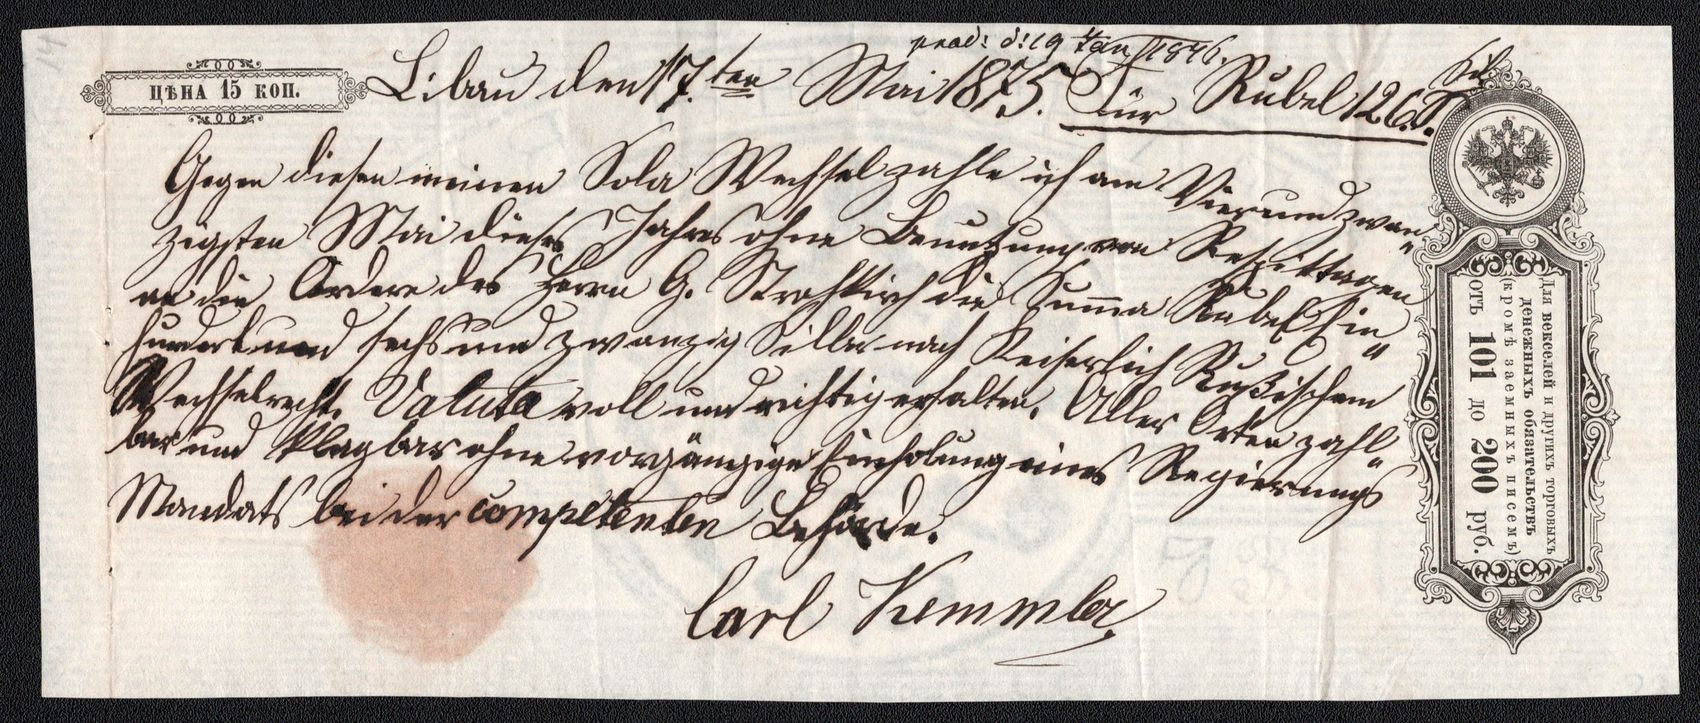 prod: d: 19 Jan. 1876.
ЦѢНА 15 КОП.
Libau den 17.ten Mai 1875. Für Rubel 126 S.
Sil.
Gegen diesen meinen Sola Wechsel zahle ich am Vierundzwan„
zigsten Mai dieses Jahres ohne Benutzung von Respittagen
an die Ordre des Herrn G. Strohkirch die Summa Rubel Ein„
hundert und sechs und zwanzig Silber nach Keiserlich Rußischem
Wechselrecht. Valuta voll und richtig erhalten. Aller Orten zahl„
bar und klagbar ohne vorgängige Einholung eines Regierungs
Mandats bei der competenten Behörde.
Carl Kemmler
Для векселей и другихъ торговыхъ
денежныхъ обязательствъ
(кромѣ заемныхъ писемъ)
отъ 101 до 200 руб.
14